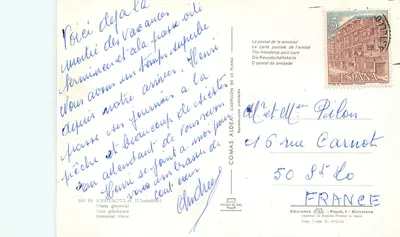 Voici déjà la
moitié des vacances
terminées et cela passe vite
Nous avons un temps superbe
depuis notre arrivée. Henri
passe ses journées à la
pêche et beaucoup de siestes
en attendant de vous revoir
Henri se joint à moi pour
vous embrasser de
tout cœur
Andrée
PEÑISCOLA (Castellón)
Vista general
Vue générale
General view
COMAS ALDEA CASTELLON DE LA PLANA
La postal de la amistad
La carte postale de l'amitié
The friendship post card
Die Freundschaftskarte
O postal da amizade
5
PTAS
ESPAÑA
Mr et Mme Pilon
16 rue Carnot
50 St Lo
FRANCE
Ediciones
Barcelona